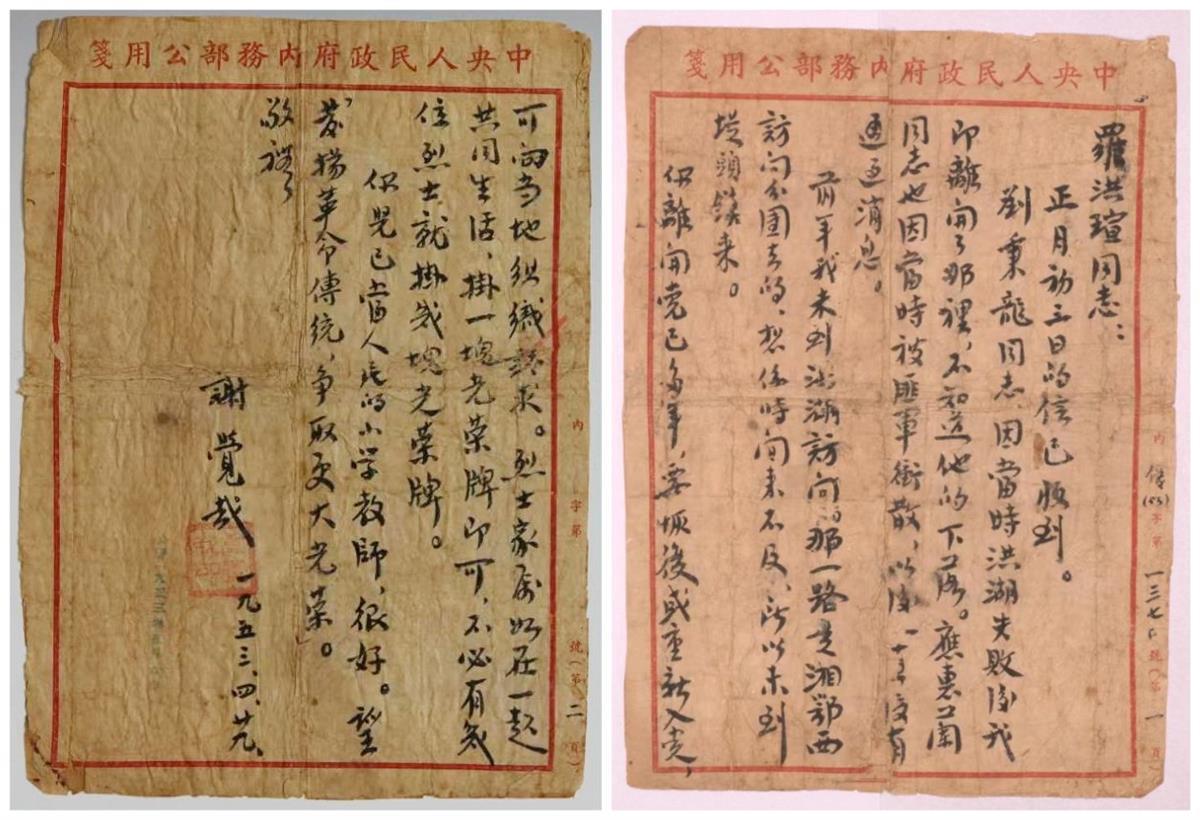 中央人民政府內務部公用箋
羅洪瑄同志：
正月初三日的信已收到。
劉秉龍同志、因當時洪湖失敗後我
即離開了那裡，不知道他的下落。應惠蘭
同志也因當時被匪軍衝散，以後一直沒有
通过消息。
前年我未到洪湖訪问，那一路是湘鄂西
訪问分團去的，想係時间来不及，所以未到
堤頭鎮来。
你離開党已多年，要恢復或重新入党，
內 (53)字第一三七 號（第一頁）
中央人民政府內務部公用箋
可向当地組織請求。烈士家属如在一起
共同生活，掛一塊光荣牌即可，不必有幾
位烈士就掛幾塊光荣牌。
你兒已當人民的小学教師，很好。望
发揚革命傳統，争取更大光荣。
敬禮
謝覺哉
一九五三、四、廿九、
內 字第 號（第二頁）